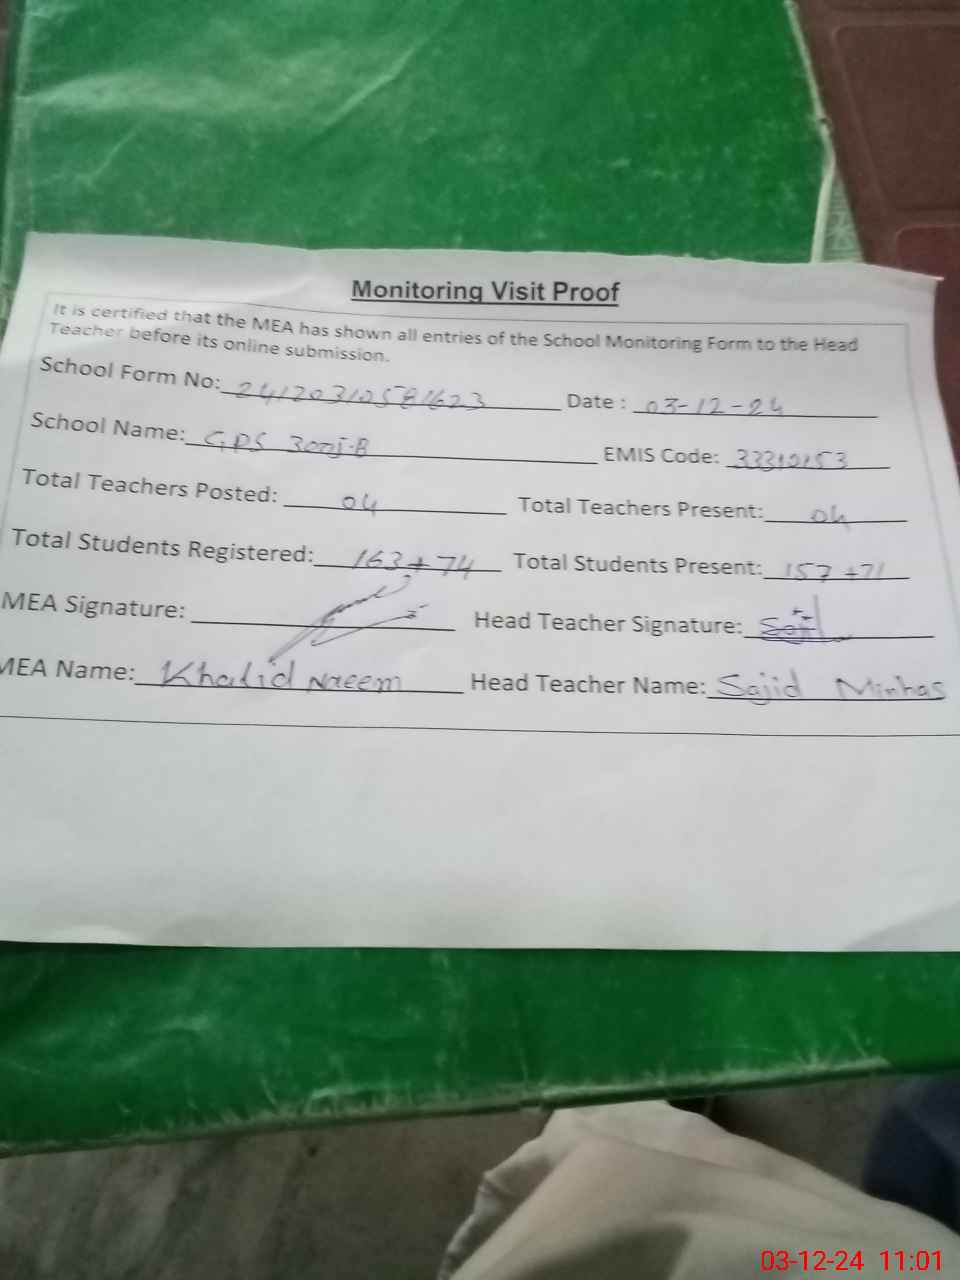 Monitoring Visit Proof
It is certified that the MEA has shown all entries of the School Monitoring Form to the Head
Teacher before its online submission.
School Form No: 24120310581623 Date : 03-12-24
School Name: GPS 300J.B EMIS Code: 33310153
Total Teachers Posted: 04 Total Teachers Present: 04
Total Students Registered: 163+74 Total Students Present: 157+71
MEA Signature: Head Teacher Signature:
MEA Name: Khalid Naeem Head Teacher Name: Sajid Minhas
03-12-24 11:01